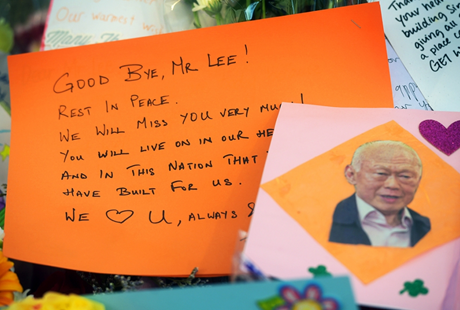 Our warmest wi
Many Th
GOOD BYE, MR LEE!
REST IN PEACE.
WE WILL MISS YOU VERY MU
YOU WILL LIVE ON IN OUR HE
AND IN THIS NATION THAT
HAVE BUILT FOR US.
WE ♡ U, ALWAYS
Than
your hea
building Si
giving all
a place c
GET W